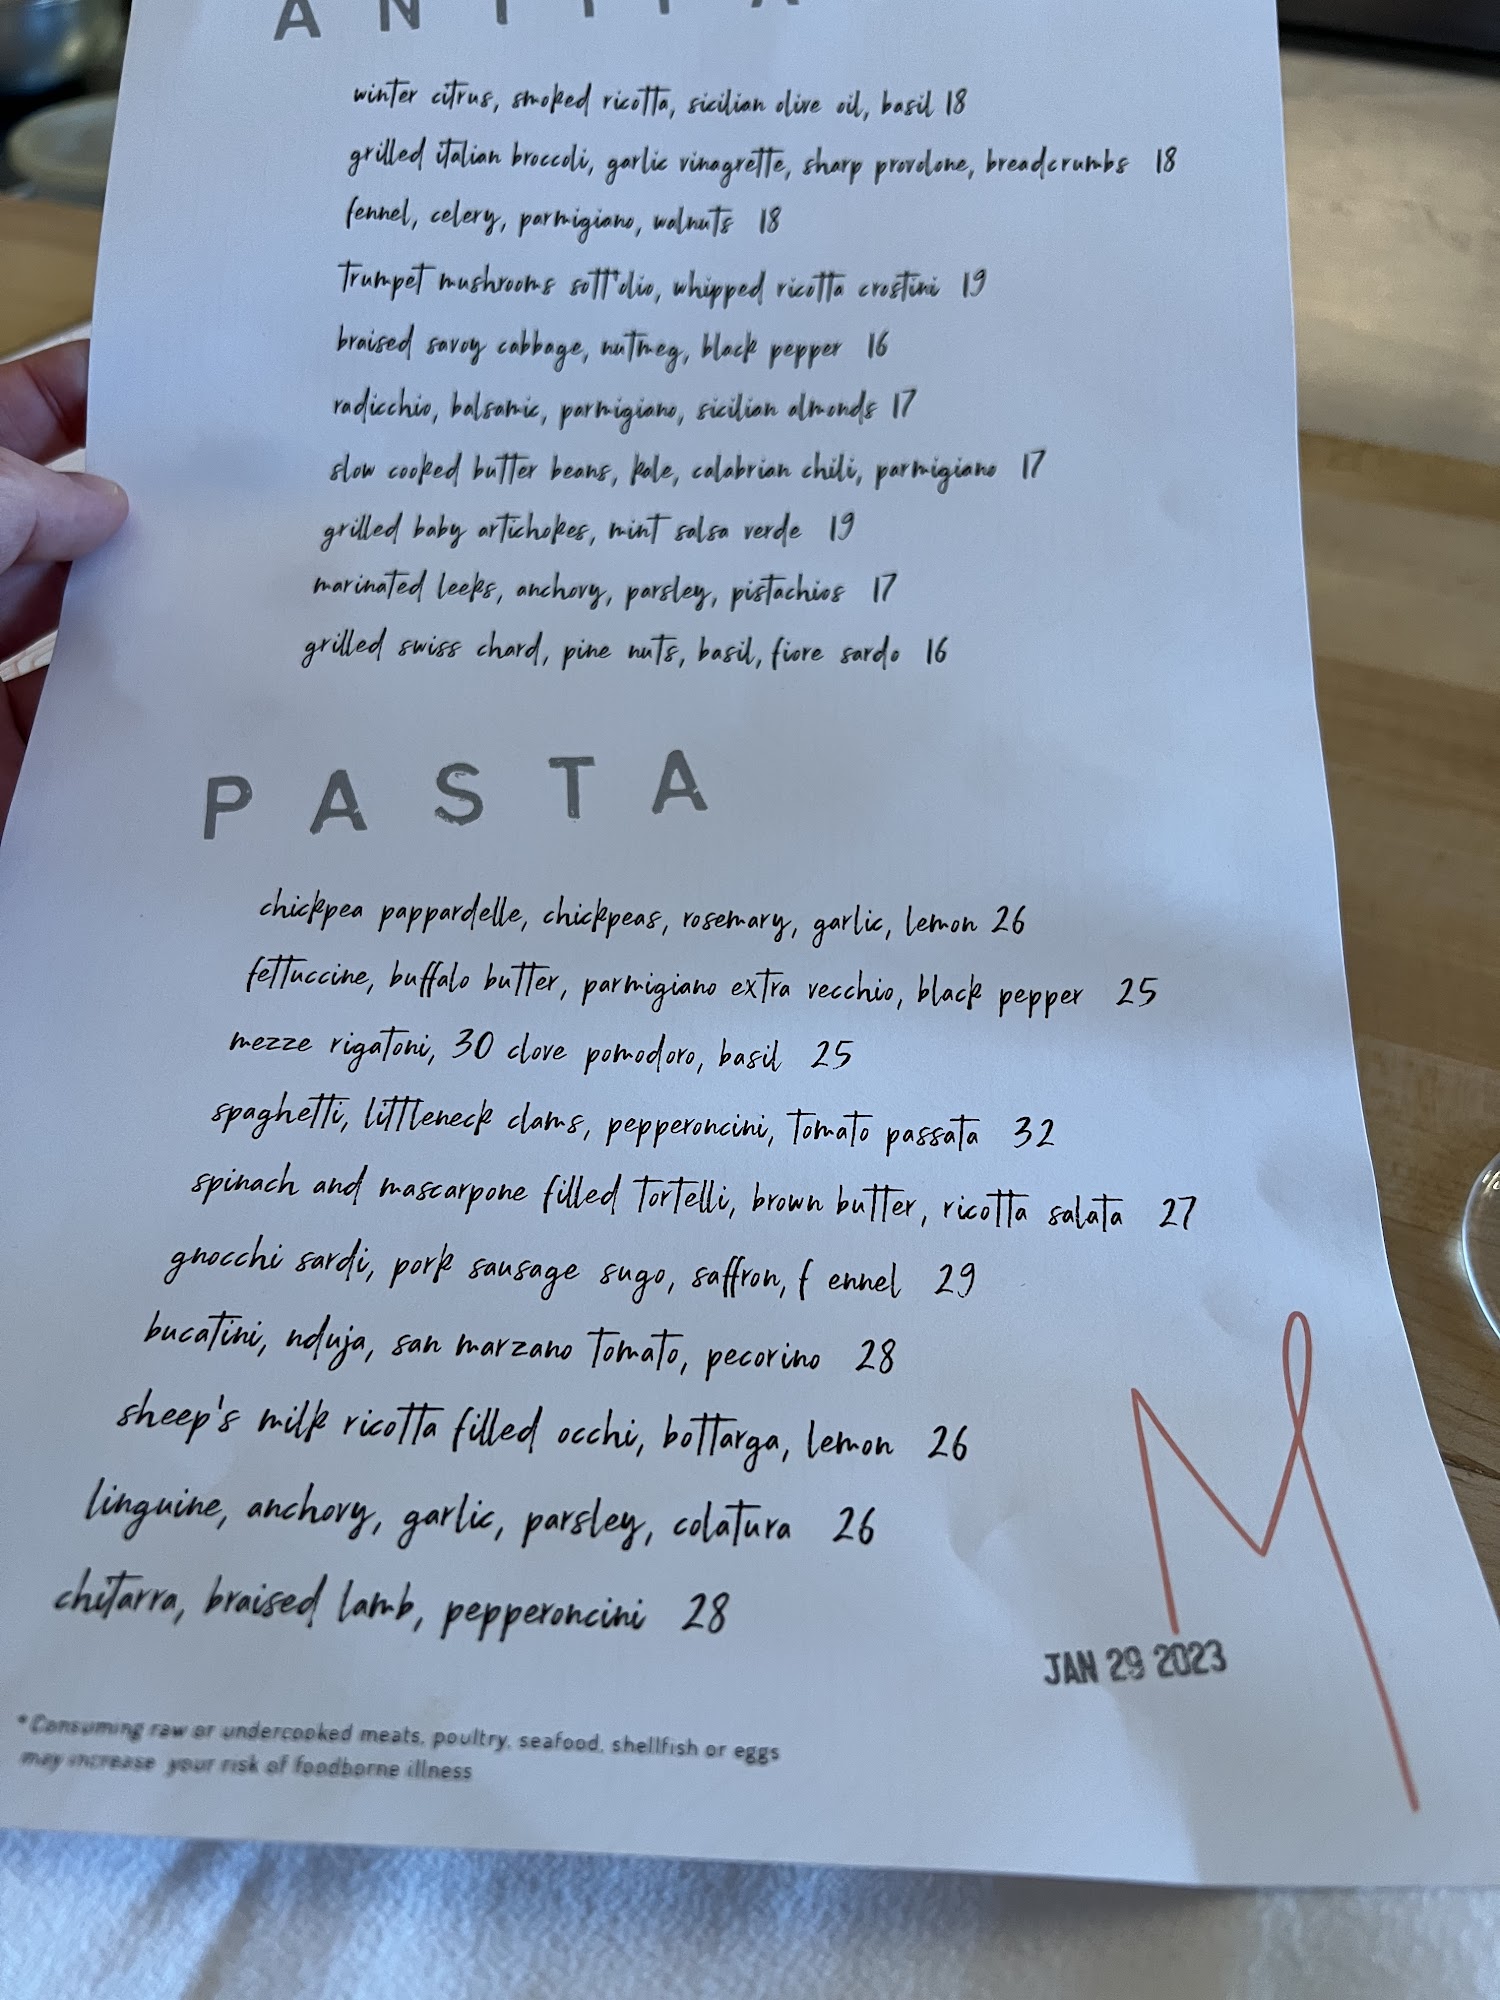 ANTIPA
winter citrus, smoked ricotta, sicilian olive oil, basil 18
grilled italian broccoli, garlic vinagrette, sharp provolone, breadcrumbs 18
fennel, celery, parmigiano, walnuts 18
trumpet mushrooms sott'olio, whipped ricotta crostini 19
braised savoy cabbage, nutmeg, black pepper 16
radicchio, balsamic, parmigiano, sicilian almonds 17
slow cooked butter beans, kale, calabrian chili, parmigiano 17
grilled baby artichokes, mint salsa verde 19
marinated leeks, anchovy, parsley, pistachios 17
grilled swiss chard, pine nuts, basil, fiore sardo 16
PASTA
chickpea pappardelle, chickpeas, rosemary, garlic, lemon 26
fettuccine, buffalo butter, parmigiano extra vecchio, black pepper 25
mezze rigatoni, 30 clove pomodoro, basil 25
spaghetti, littleneck clams, pepperoncini, tomato passata 32
spinach and mascarpone filled tortelli, brown butter, ricotta salata 27
gnocchi sardi, pork sausage sugo, saffron, f ennel 29
bucatini, nduja, san marzano tomato, pecorino 28
sheep's milk ricotta filled occhi, bottarga, lemon 26
linguine, anchovy, garlic, parsley, colatura 26
chitarra, braised lamb, pepperoncini 28
M
JAN 29 2023
*Consuming raw or undercooked meats, poultry, seafood, shellfish or eggs
may increase your risk of foodborne illness